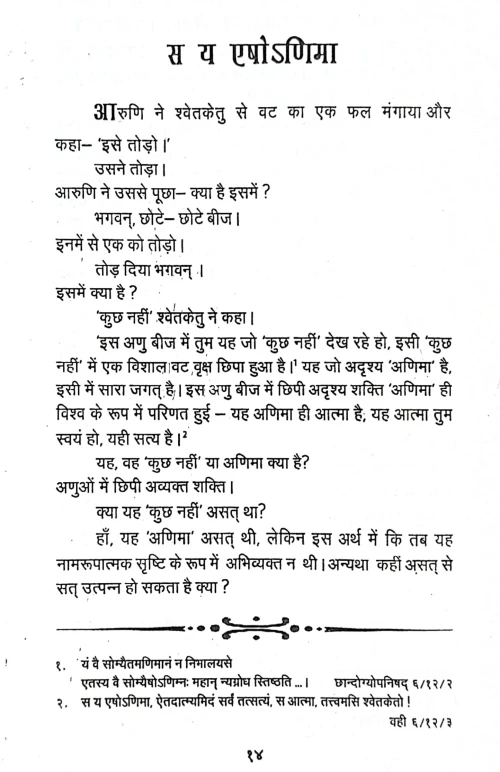 स य एषोऽणिमा
आरुणि ने श्वेतकेतु से वट का एक फल मंगाया और
कहा– 'इसे तोड़ो।'
उसने तोड़ा।
आरुणि ने उससे पूछा– क्या है इसमें ?
भगवन्, छोटे– छोटे बीज।
इनमें से एक को तोड़ो।
तोड़ दिया भगवन् ।
इसमें क्या है ?
'कुछ नहीं' श्वेतकेतु ने कहा।
'इस अणु बीज में तुम यह जो 'कुछ नहीं' देख रहे हो, इसी 'कुछ
नहीं' में एक विशाल वट वृक्ष छिपा हुआ है।¹ यह जो अदृश्य 'अणिमा' है,
इसी में सारा जगत् है। इस अणु बीज में छिपी अदृश्य शक्ति 'अणिमा' ही
विश्व के रूप में परिणत हुई – यह अणिमा ही आत्मा है, यह आत्मा तुम
स्वयं हो, यही सत्य है।²
यह, वह 'कुछ नहीं' या अणिमा क्या है?
अणुओं में छिपी अव्यक्त शक्ति।
क्या यह 'कुछ नहीं' असत् था?
हाँ, यह 'अणिमा' असत् थी, लेकिन इस अर्थ में कि तब यह
नामरूपात्मक सृष्टि के रूप में अभिव्यक्त न थी। अन्यथा कहीं असत् से
सत् उत्पन्न हो सकता है क्या ?
१. यं वै सोम्यैतमणिमानं न निभालयसे
एतस्य वै सोम्यैषोऽणिम्नः महान् न्यग्रोध स्तिष्ठति ...। छान्दोग्योपनिषद् ६/१२/२
२. स य एषोऽणिमा, ऐतदात्म्यमिदं सर्वं तत्सत्यं, स आत्मा, तत्त्वमसि श्वेतकेतो !
वही ६/१२/३
१४